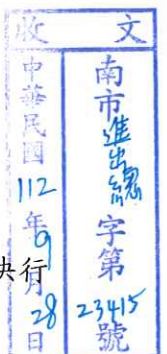 收文
南市進出總字第23415號
中華民國112年9月28日
決行